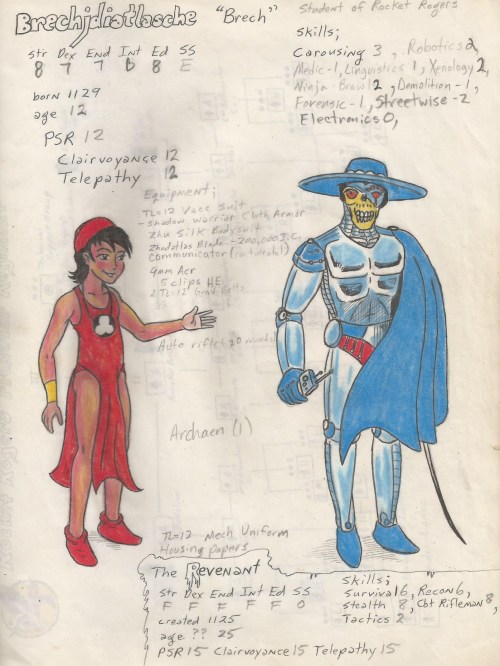 Brechjdiatlasche "Brech"
Str Dex End Int Ed SS
8 7 7 6 8 E
born 1129
age 12
PSR 12
Clairvoyance 12
Telepathy 12
Student of Rocket Rogers
Skills;
Carousing 3, Robotics 2,
Medic-1, Linguistics 1, Xenology 2,
Ninja Brawl 2, Demolition-1,
Forensic-1, Streetwise-2
Electronics 0,
Equipment;
TL=12 Vacc Suit
-Shadow Warrior Cloth Armor
Zhu Silk Bodysuit
Zhodatlas Blade -200,000 I.C.
Communicator
9mm Acr
5 clips HE
2 TL-12 Grav Belts
Auto rifle 20 rounds
Archaen (1)
TL=12 Mech Uniform
Housing Papers
The Revenant
Str Dex End Int Ed SS
F F F F F 0
created 1125
age ?? 25
PSR 15 Clairvoyance 15 Telepathy 15
Skills;
Survival 6, Recon 6,
Stealth 8, Cbt Rifleman 8,
Tactics 2